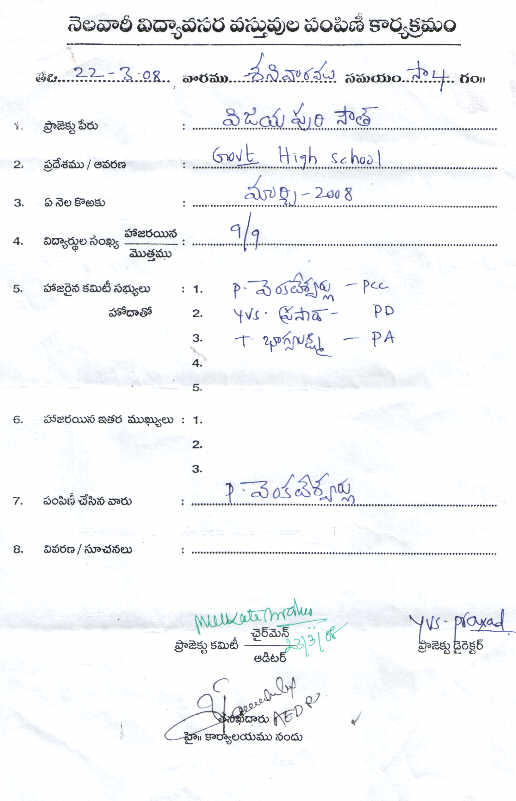 నెలవారీ విద్యావసర వస్తువుల పంపిణీ కార్యక్రమం
తేది 22-3-08 వారము శనివారము సమయం సా 4 గం॥
1. ప్రాజెక్టు పేరు : విజయ పురి సౌత్
2. ప్రదేశము / ఆవరణ : Govt High school
3. ఏ నెల కొఱకు : మార్చి - 2008
4. విద్యార్థుల సంఖ్య హాజరయిన / మొత్తము : 9/9
5. హాజరైన కమిటీ సభ్యులు : 1. P. వెంకటేశ్వర్లు - PCC
హోదాతో 2. YVS. ప్రసాద్ - PD
3. T భాగ్యలక్ష్మి - PA
4.
5.
6. హాజరయిన ఇతర ముఖ్యులు : 1.
2.
3.
7. పంపిణీ చేసిన వారు : P. వెంకటేశ్వర్లు
8. వివరణ / సూచనలు :
ప్రాజెక్టు కమిటీ ఛైర్‌మెన్ / ఆడిటర్ 23/3/08
YVS. Prasad
ప్రాజెక్టు డైరెక్టర్
తనిఖీదారు AEDP
హై॥ కార్యాలయము నందు